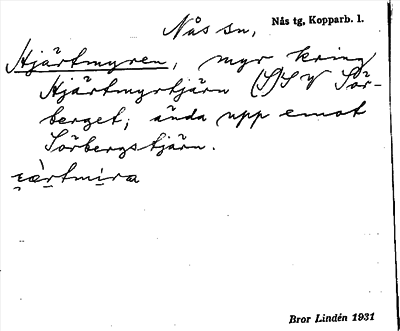 Nås sn, Nås tg, Kopparb. l.
Hjärtmyren, myr kring
Hjärtmyrtjärn (S)SV Sör-
berget; ända upp emot
Sörbergstjärn.
Bror Lindén 1931